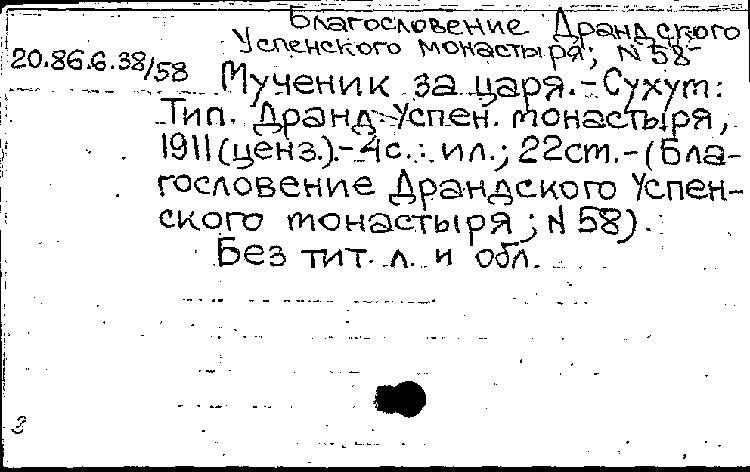 Благословение Драндского
Успенского монастыря; N 58
20.86.6.38/58
Мученик за царя.-Сухум:
Тип. Дранд.-Успен. монастыря,
1911(ценз.).-4с.: ил.; 22см.-(Бла-
гословение Драндского Успен-
ского монастыря; N 58).
Без тит. л. и обл.